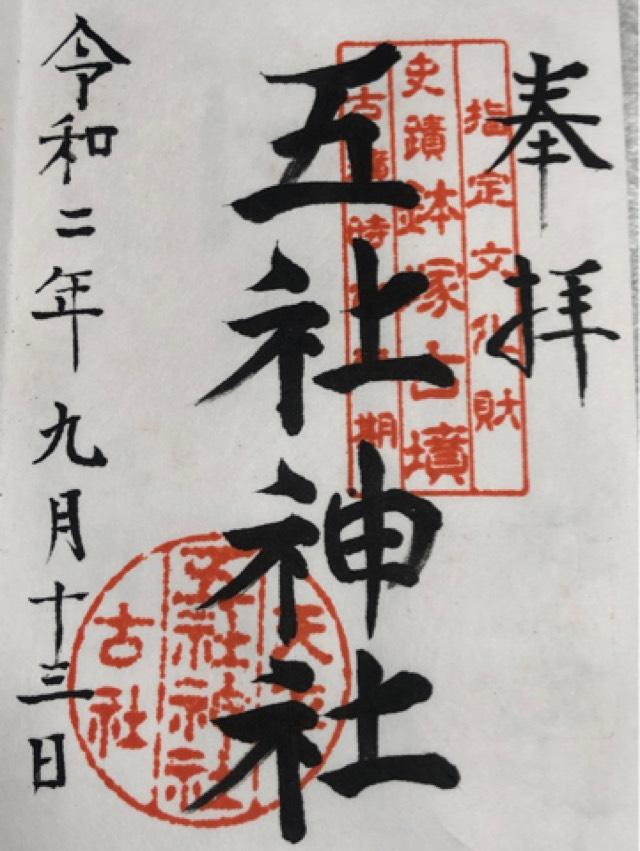 奉拝
指定文化財
史蹟鉢塚古墳
古墳時代後期
五社神社
五社神社
古社
令和二年九月十三日